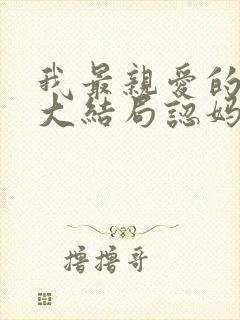 我最親愛的
大結局認媽
撸撸哥